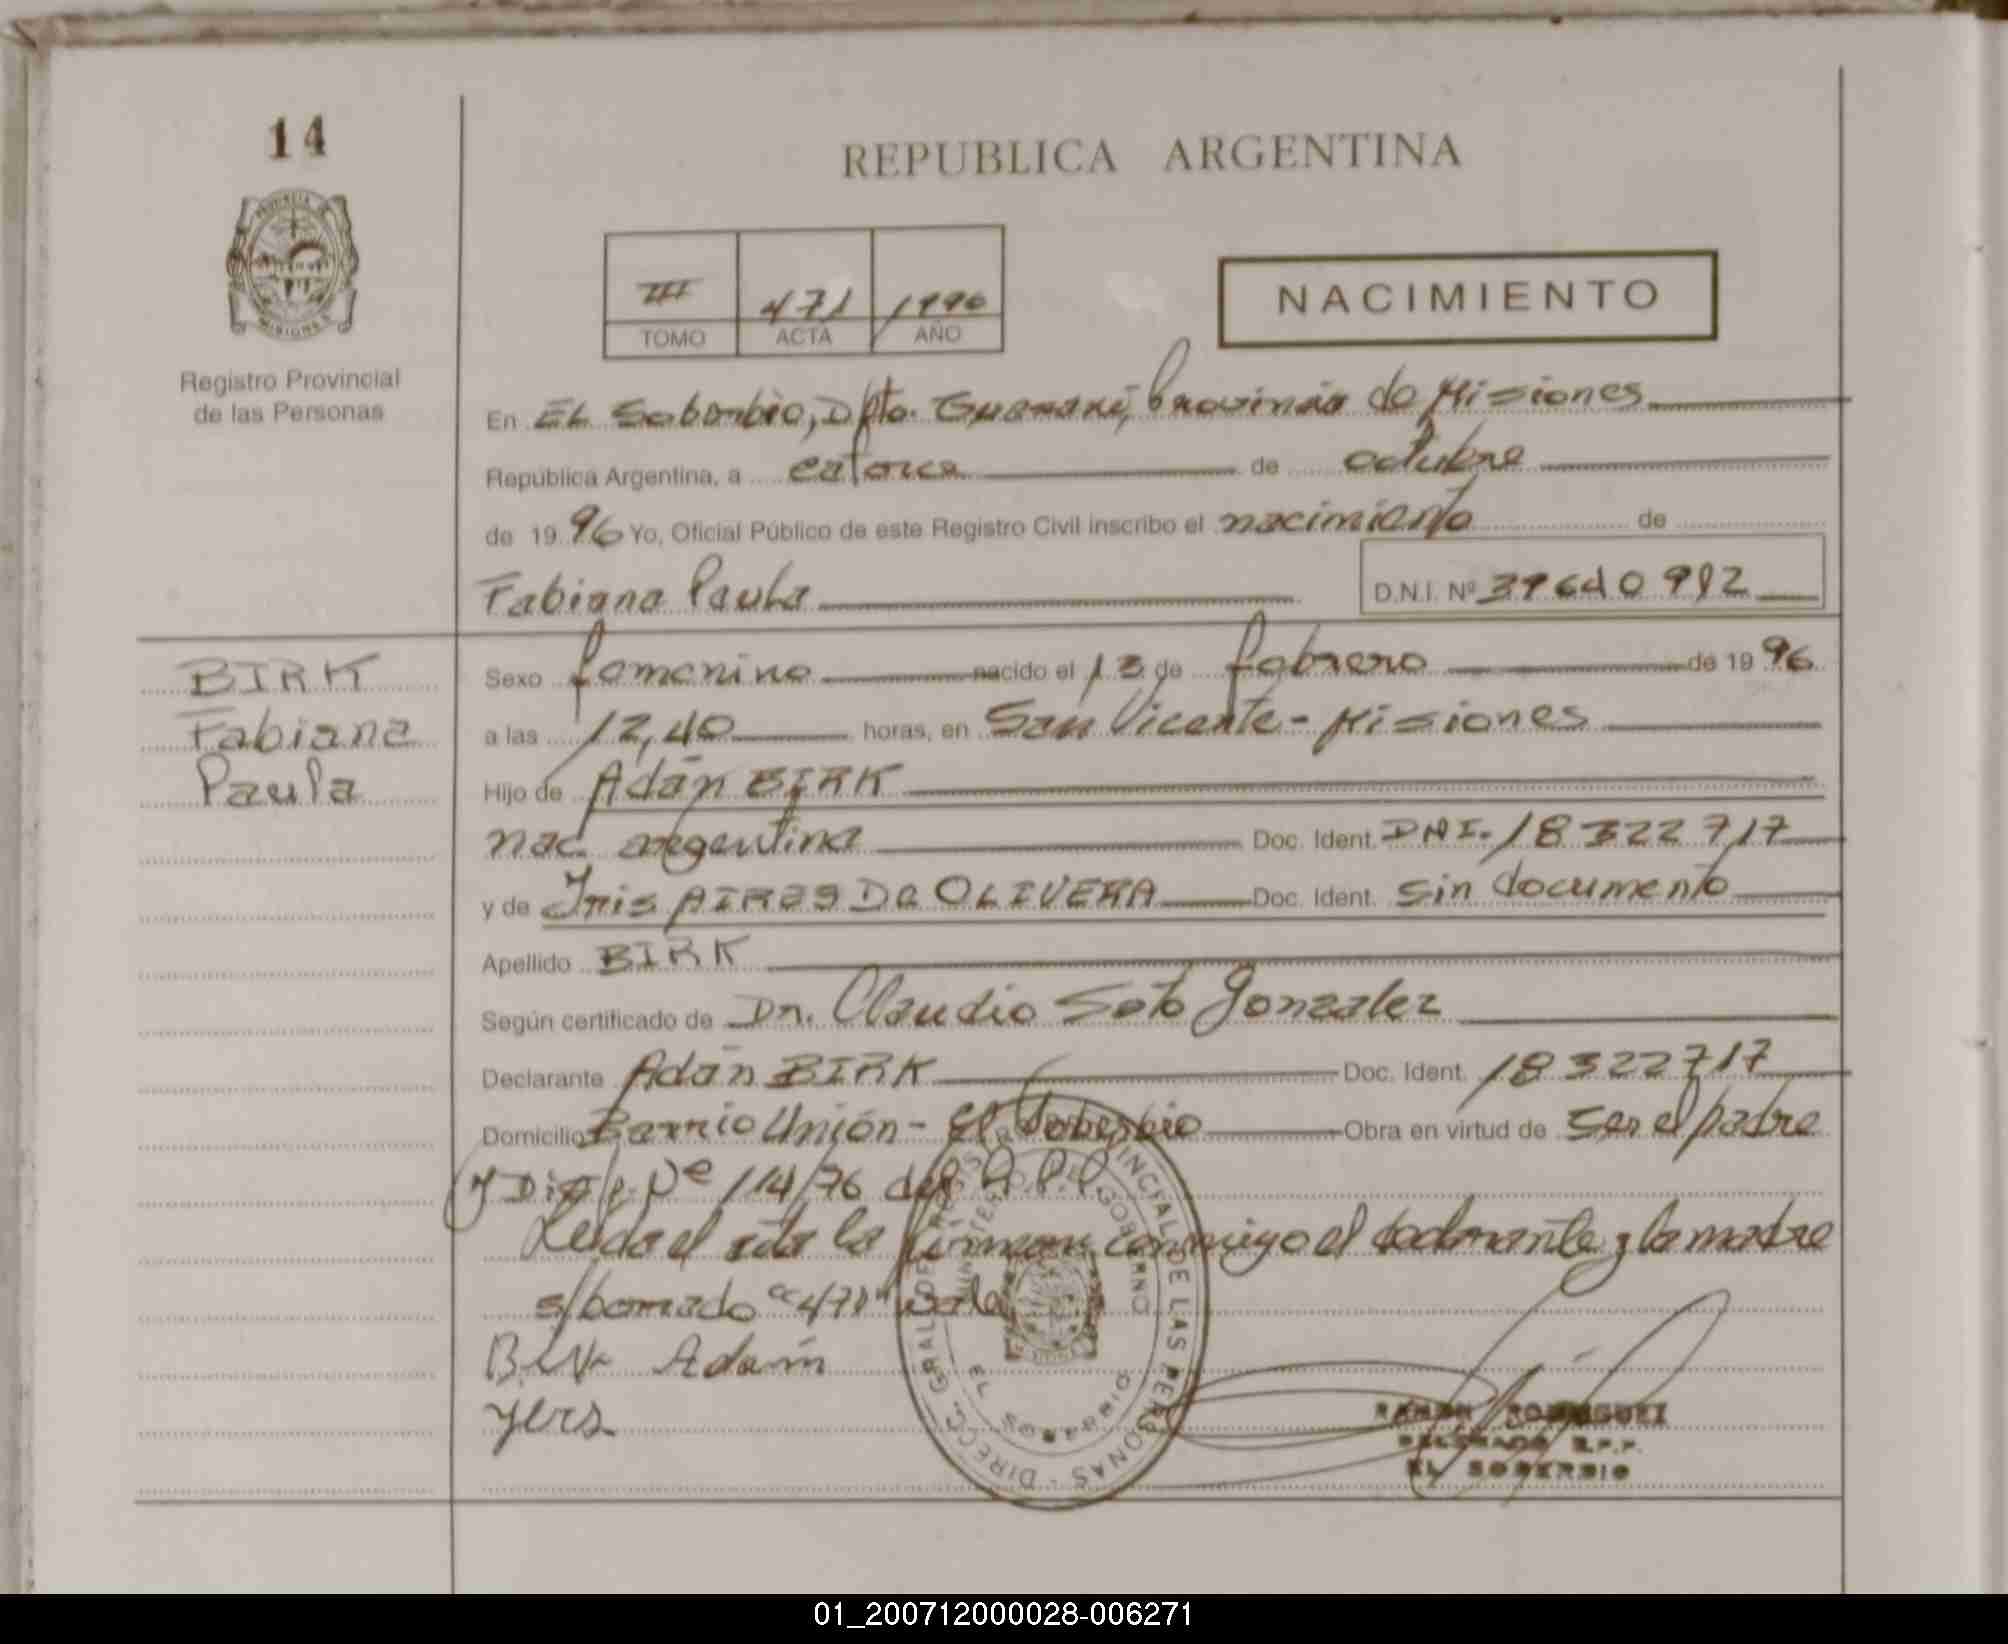 14
REPUBLICA ARGENTINA
PROVINCIA DE
MISIONES
III 471 1996
TOMO ACTA AÑO
NACIMIENTO
Registro Provincial
de las Personas
En EL Soberbio, Dpto. Guaraní, Provincia de Misiones
República Argentina, a catorce de octubre
de 1996 Yo, Oficial Público de este Registro Civil inscribo el nacimiento de
Fabiana Paula D.N.I. Nº
BIRK
Fabiana
Paula
Sexo femenino nacido el 13 de febrero de 1996
a las 12,40 horas, en San Vicente - Misiones
Hijo de Adán BIRK
nac. argentina Doc. Ident. DNI. 18322717
y de Iris AIRES DE OLIVERA Doc. Ident. sin documento
Apellido BIRK
Según certificado de Dr. Claudio Soto Gonzalez
Declarante Adán BIRK Doc. Ident. 18322717
Domicilio Barrio Unión - El Soberbio Obra en virtud de ser el padre
y Disp. Nº 114/76 del R.P.P.
Leída el acta la firman conmigo el declarante y la madre
s/borrado "471" vale
Adam
DIRECC. GRAL. DE REGISTRO PROVINCIAL DE LAS PERSONAS
MINISTERIO DE GOBIERNO
EL SOBERBIO
RAMON RODRIGUEZ
DELEGADO R.P.P.
EL SOBERBIO
01_200712000028-006271